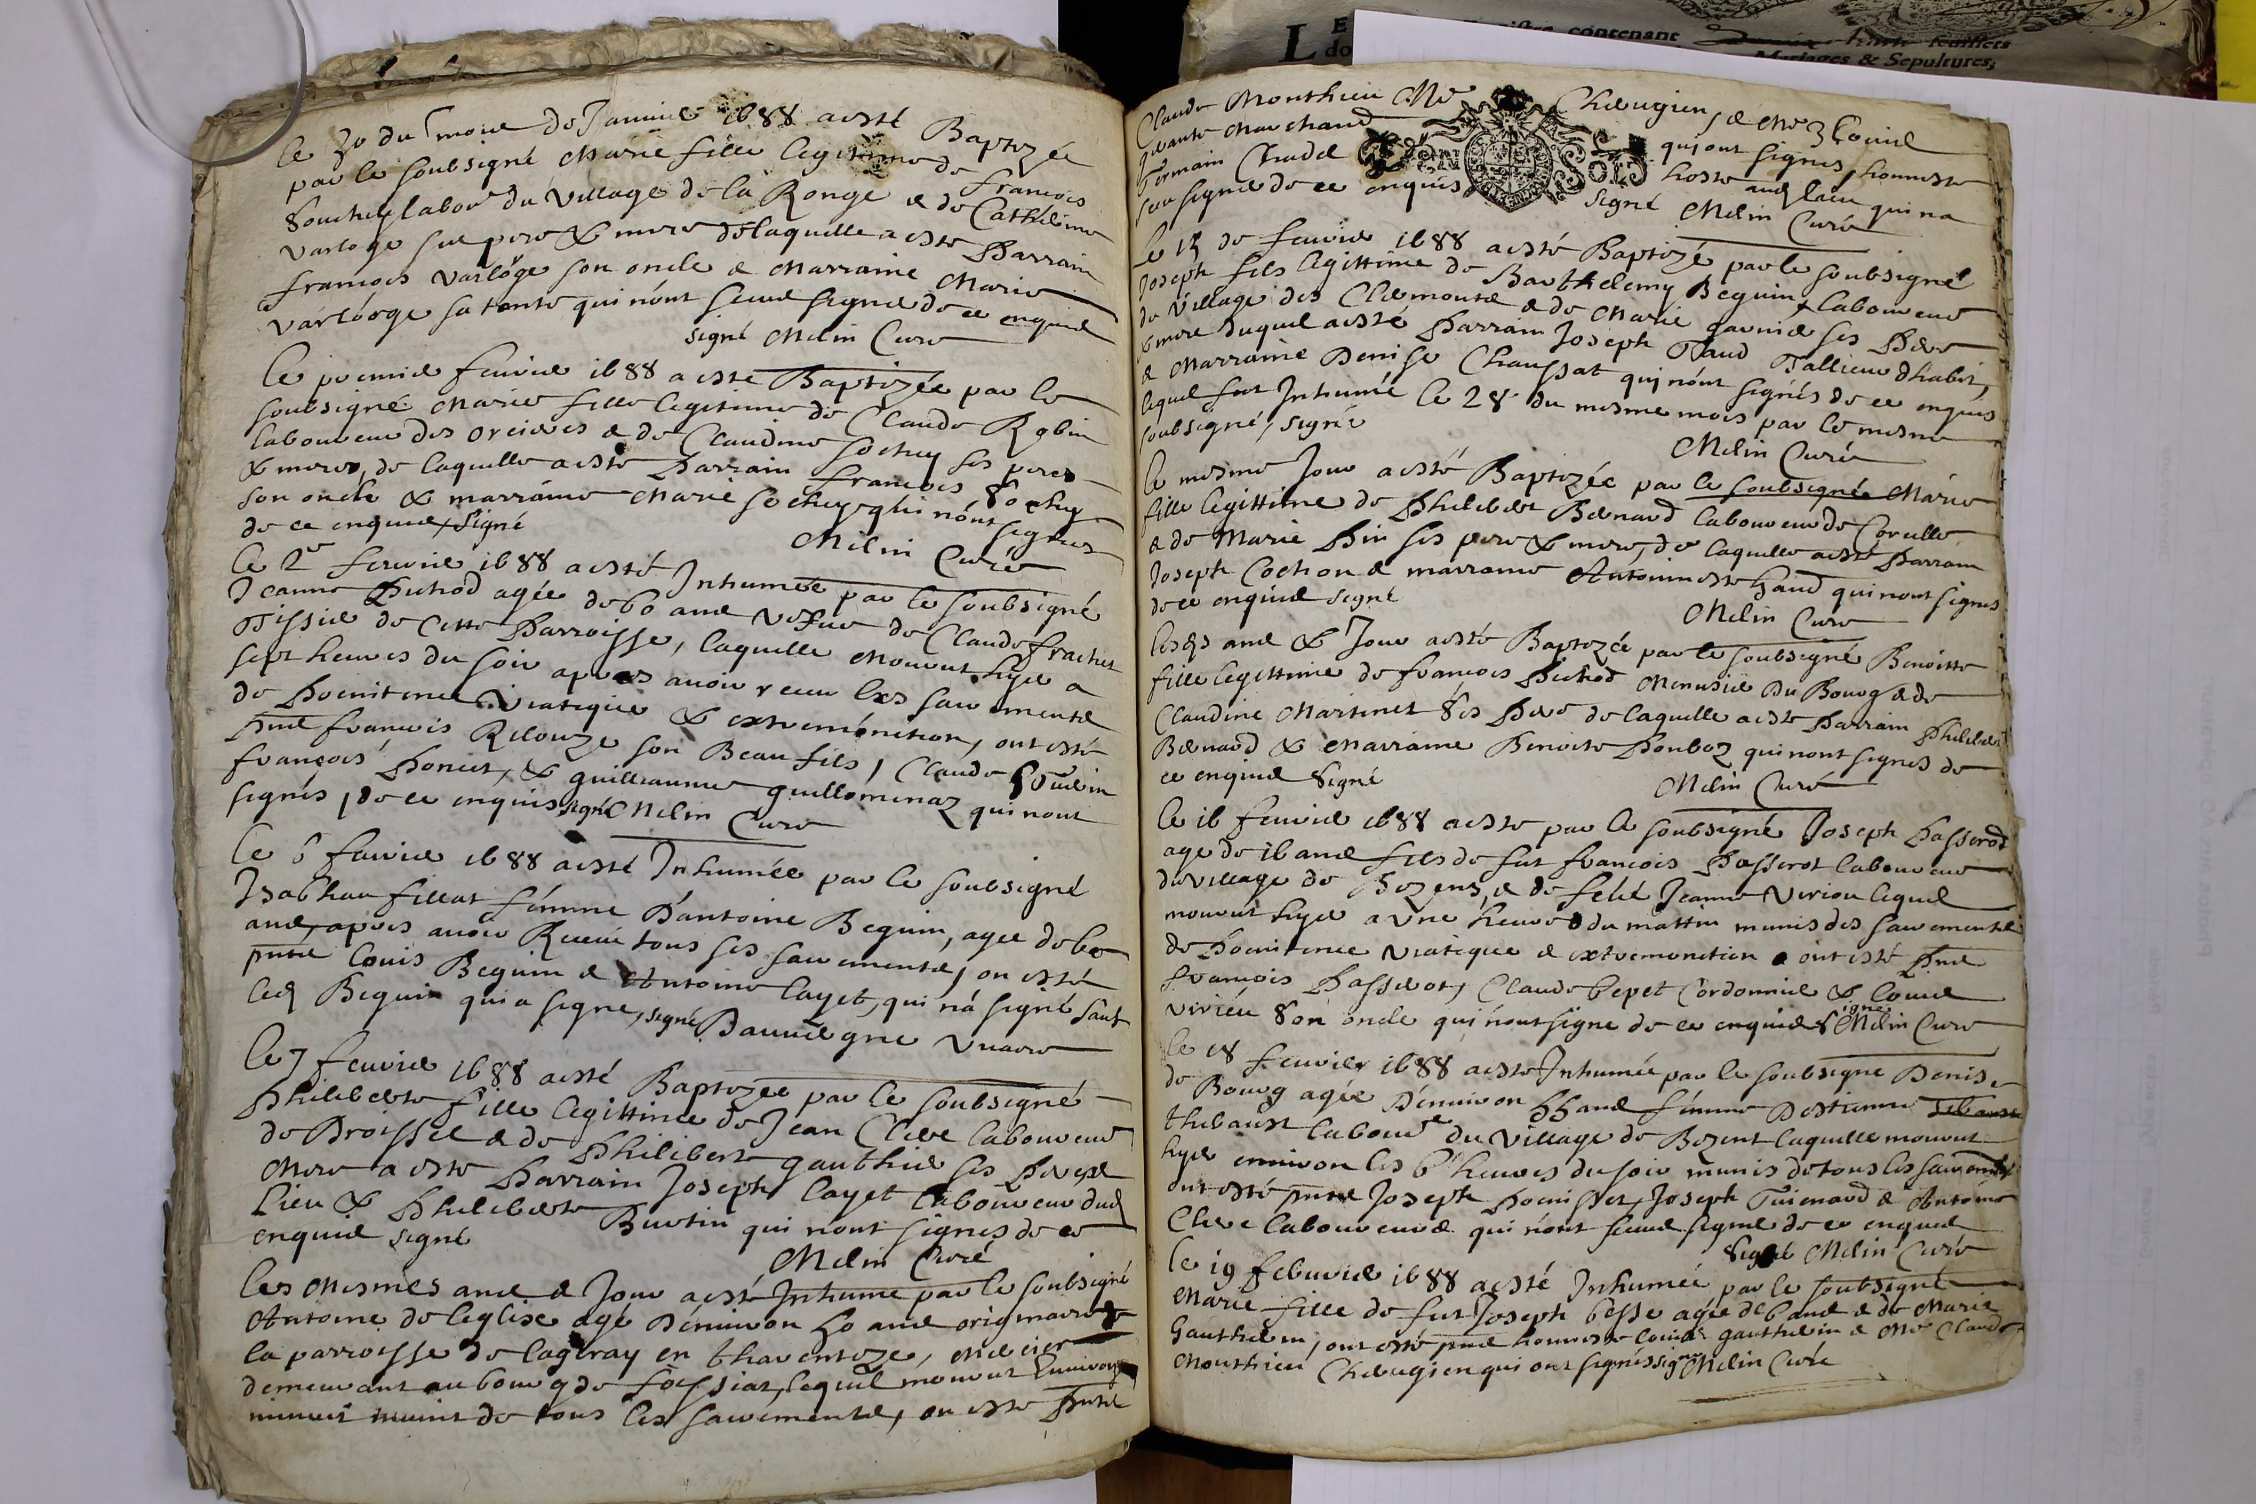 Le 30 du mois de Janvie 1688 a esté Baptizée
par le soubsigné Marie fille legitime de francois
Sochey labor du village de la Ronge & de Catheline
varloge ses pere & mere de laquelle a esté Parrain
francois varloge son oncle & Marraine Marie
varlooge sa tante qui n'ont sceue signé de ce enquis
signé Melin Curé
Le premie fevrie 1688 a esté Baptizée par le
soubsigné Marie fille legitime de Claude Robin
laboureur des & de Claudine sochey ses peres
& meres, de laquelle a esté Parrain francois Sochey
son oncle & marraine Marie sochey qui n'ont signés
de ce enquis signé
Melin Curé
Le 2e fevrie 1688 a esté Inhumée par le soubsigné
Jeanne Puthod agée de 60 ans vefue de Claude frachet
Tissie de Cette Parroisse, laquelle mourut hyer a
sept heures du soir apres avoir receu les sacrements
de Poenitence Viatique & extremónction, ont esté
Pnts francois Relouze son Beau fils, Claude
françois Poncet, & guilleaume guillominaz qui n'ont
signés, de ce enquis signé Melin Curé
Le 6 fevrie 1688 a esté Inhumée par le soubsigné
Isabeau fillat femme D'antoine Beguin, agee de 60
ans, apres avoir Receu tous ses sacrements, on esté
pnts Louis Beguin & Antoine layet, qui n'a signé sauf
led Beguin qui a signe, signé Dauvergne vicaire
Le 7 fevrie 1688 a esté Baptizée par le soubsigné
Philiberte fille legittime de Jean Clere laboureur
de Broissie & de Philiberte gauthie ses Pere &
Mere a esté Parrain Joseph layet laboureur dud
Lieu & Philiberte Burtin qui n'ont signés de ce
enquis signé
Melin Curé
Les Mesmes ans & Jour a esté Inhume par le soubsigné
Antoine de l'eglise agé D'environ 50 ans originaire de
la parroisse de en, Mercier
demeurant au bourg de foissiat, lequel mourut hier environ
minuit muni de tous les sacrements, on esté Pnts
Claude Monthieu Me Chirugien, & Me Louis
marchand qui ont signes, honneste
Germain hoste aud lieu qui n'a
sceu signé de ce enquis signé Melin Curé
Le 15 de fevrie 1688 a esté Baptizé par le soubsigné
Joseph fils legittime de Barthelemy Beguin laboureur
du village des Clemonts & de Marie garnie ses Pere
& mere duquel a esté Parrain Joseph Taud Tallieur d'habit,
& Marraine Denise Chaussat qui n'ont signés de ce enquis
lequel fut Inhumé le 28 du mesme mois par le mesme
soubsigné, signé
Melin Curé
Le mesme Jour a esté Baptizée par le soubsigné Marie
fille legittime de Philibert Bernard laboureur de Corcelle
& de Marie Pin ses pere & mere, de laquelle a esté Parrain
Joseph Cochon & marraine Antoinette gaud qui n'ont signes
de ce enquis signé
Melin Curé
Lesds ans & Jour a esté Baptizée par le soubsigné Benoitte
fille legittime de françois Puthod Menusie Du Bourg & de
Claudine Martinet ses Pere de laquelle a esté Parrain Philibert
Bernard & Marraine Benoite Ponboz qui n'ont signes de
ce enquis signé
Melin Curé
Le 16 fevrie 1688 a esté par le soubsigné Joseph Passerod
age de 16 ans fils de fut francois Passerot laboureur
du village de Bezens, & de feüe Jeanne Virieu lequel
mourut hyer a une heure du mattin munis des sacrements
de Poenitence viatique & extremonction ont esté Pnts
francois Passerot, Claude Cordonnie & Louis
virieu son oncle qui n'ont signe de ce enquis signé Melin Curé
Le 18 fevrier 1688 a esté Inhumée par le soubsigne Denise
du Bourg agée D'environ 55 ans femme D'estienne
thibaust laboure du village de Bezent laquelle mourut
hyer environ les 6 heures du soir munis de tous les sacrements
ont esté pnts Joseph Poenisset, Joseph Tuienard & Antoine
Clere laboureurs qui n'ont sceus signé de ce enquis
Signé Melin Curé
Le 19 febvrie 1688 a esté Inhumée par le soubsigné
Marie fille de fut Joseph besse agée de 6 ans & de Marie
Gauthier, ont esté pnts honneste Louis gauthie & Me Claude
Monthieu Chirugien qui ont signés signé Melin Curé
contenant feuillets
Mariages & Sepultures,